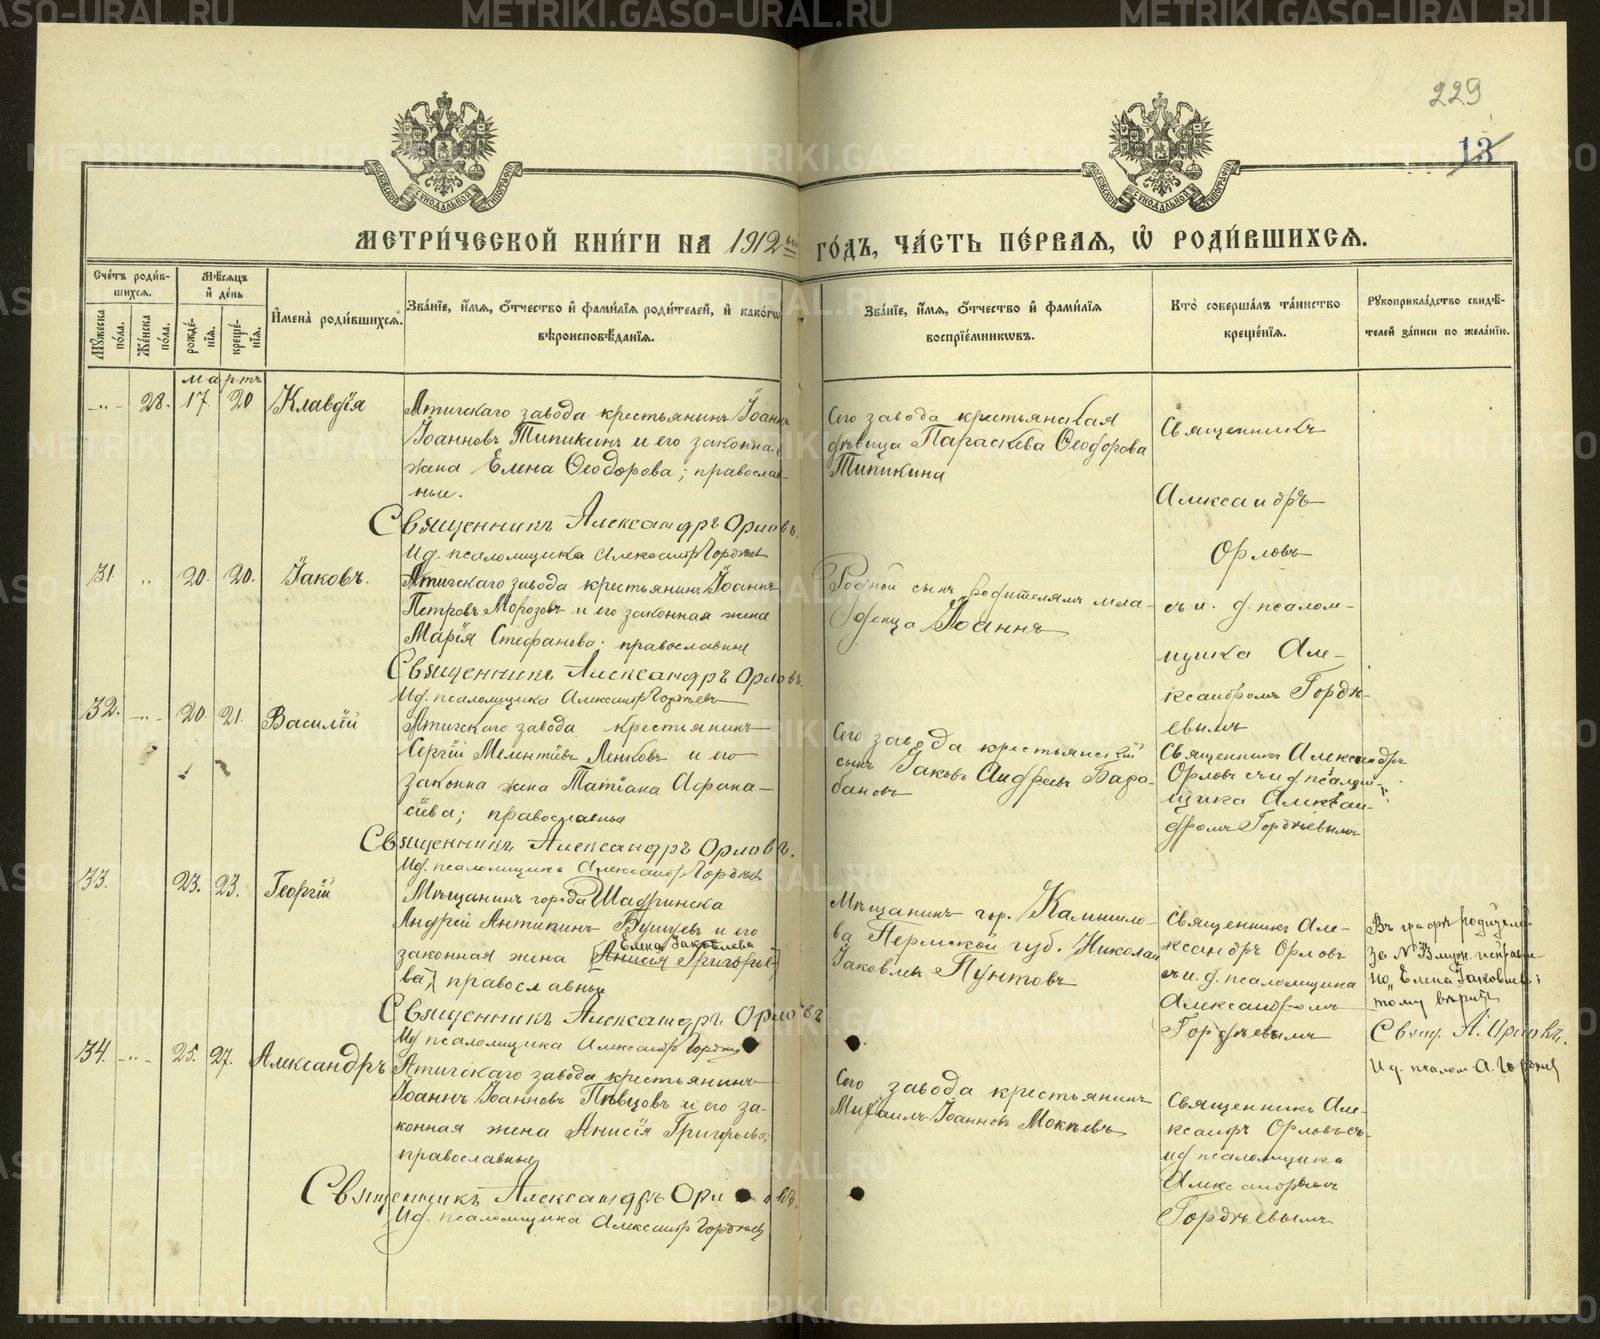 229
13
МОСКОВСКОЙ СУНОДАЛЬНОЙ ТИПОГРАФІИ
МОСКОВСКОЙ СУНОДАЛЬНОЙ ТИПОГРАФІИ
МЕТРИ́ЧЕСКОЙ КНИ́ГИ НА 1912ый ГО́ДЪ, ЧА́СТЬ ПЕ́РВАЯ, Ѡ РОДИ́ВШИХСЯ.
Сче́тъ роди́в-
шихся.
Му́жеска по́ла.
Же́нска по́ла.
Мѣ́сяцъ
и де́нь
рожде́-
нія.
креще́-
нія.
Имена̀ роди́вшихся.
Зва́ніе, и́мя, о́тчество и фами́лія роди́телей, и како́гѡ
вѣроисповѣ́данія.
Зва́ніе, и́мя, о́тчество и фами́лія
воспріе́мникѡвъ.
Кто̀ соверша́лъ та́инство
креще́нія.
Рукоприкла́дство свидѣ́-
телей за́писи по жела́нію.
мартъ
-„- 28. 17. 20 Клавдія
Атигскаго завода крестьянинъ Іоаннъ
Іоанновъ Типикинъ и его законная
жена Елена Ѳеодорова; православ-
ные.
Священникъ Александръ Орловъ.
И.д. псаломщика Александръ Гордѣевъ
Сего завода крестьянская
дѣвица Параскева Ѳеодорова
Типикина
Священникъ
Александръ
Орловъ
31. „ 20. 20. Іаковъ.
Атигскаго завода крестьянинъ Іоаннъ
Петровъ Морозовъ и его законная жена
Марія Стефанова; православные
Священникъ Александръ Орловъ.
И.д. псаломщика Александръ Гордѣевъ
Родной сынъ родителямъ мла-
денца Іоаннъ
съ и. д. псалом-
щика Але-
ксандромъ Гордѣ-
евымъ
32. -„- 20 21. Василій
Атигскаго завода крестьянинъ
Сергій Мелентіевъ Ленковъ и его
законна жена Татіана Афана-
сіева; православные
Священникъ Александръ Орловъ.
И.д. псаломщика Александръ Гордѣевъ
Сего завода крестьянскій
сынъ Іаковъ Андреевъ Бара-
бановъ
Священникъ Александръ
Орловъ съ и.д. псалом-
щика Алексан-
дромъ Гордѣевымъ
33. 23. 23. Георгій
Мѣщанинъ города Шадринска
Андрей Антипинъ и его
Елена Іаковлева
законная жена [Анисія Григорье-
ва,] православные
Священникъ Александръ Орловъ
И.д псаломщика Александръ Гордѣевъ
Мѣщанинъ гор. Камышло-
ва Пермской губ. Николай
Іаковлевъ Пунтовъ
Священникъ Але-
ксандръ Орловъ
съ и. д. псаломщика
Александромъ
Гордѣевымъ
Въ графѣ родителей
за № 33 исправле-
но „Елена Іаковлева“;
тому вѣрить
Свящ. А. Орловъ.
И.д. псалом. А. Гордѣевъ
34. -„- 25. 27. Александръ
Атигскаго завода крестьянинъ
Іоаннъ Іоанновъ Пѣвцовъ и его за-
конная жена Анисія Григорьева;
православные
Священникъ Александръ Орловъ.
И.д. псаломщика Александръ Гордѣевъ
Сего завода крестьянинъ
Михаилъ Іоанновъ Мокѣевъ
Священникъ Але-
ксандръ Орловъ съ
ид псаломщика
Александромъ
Гордѣевымъ
METRIKI.GASO-URAL.RU